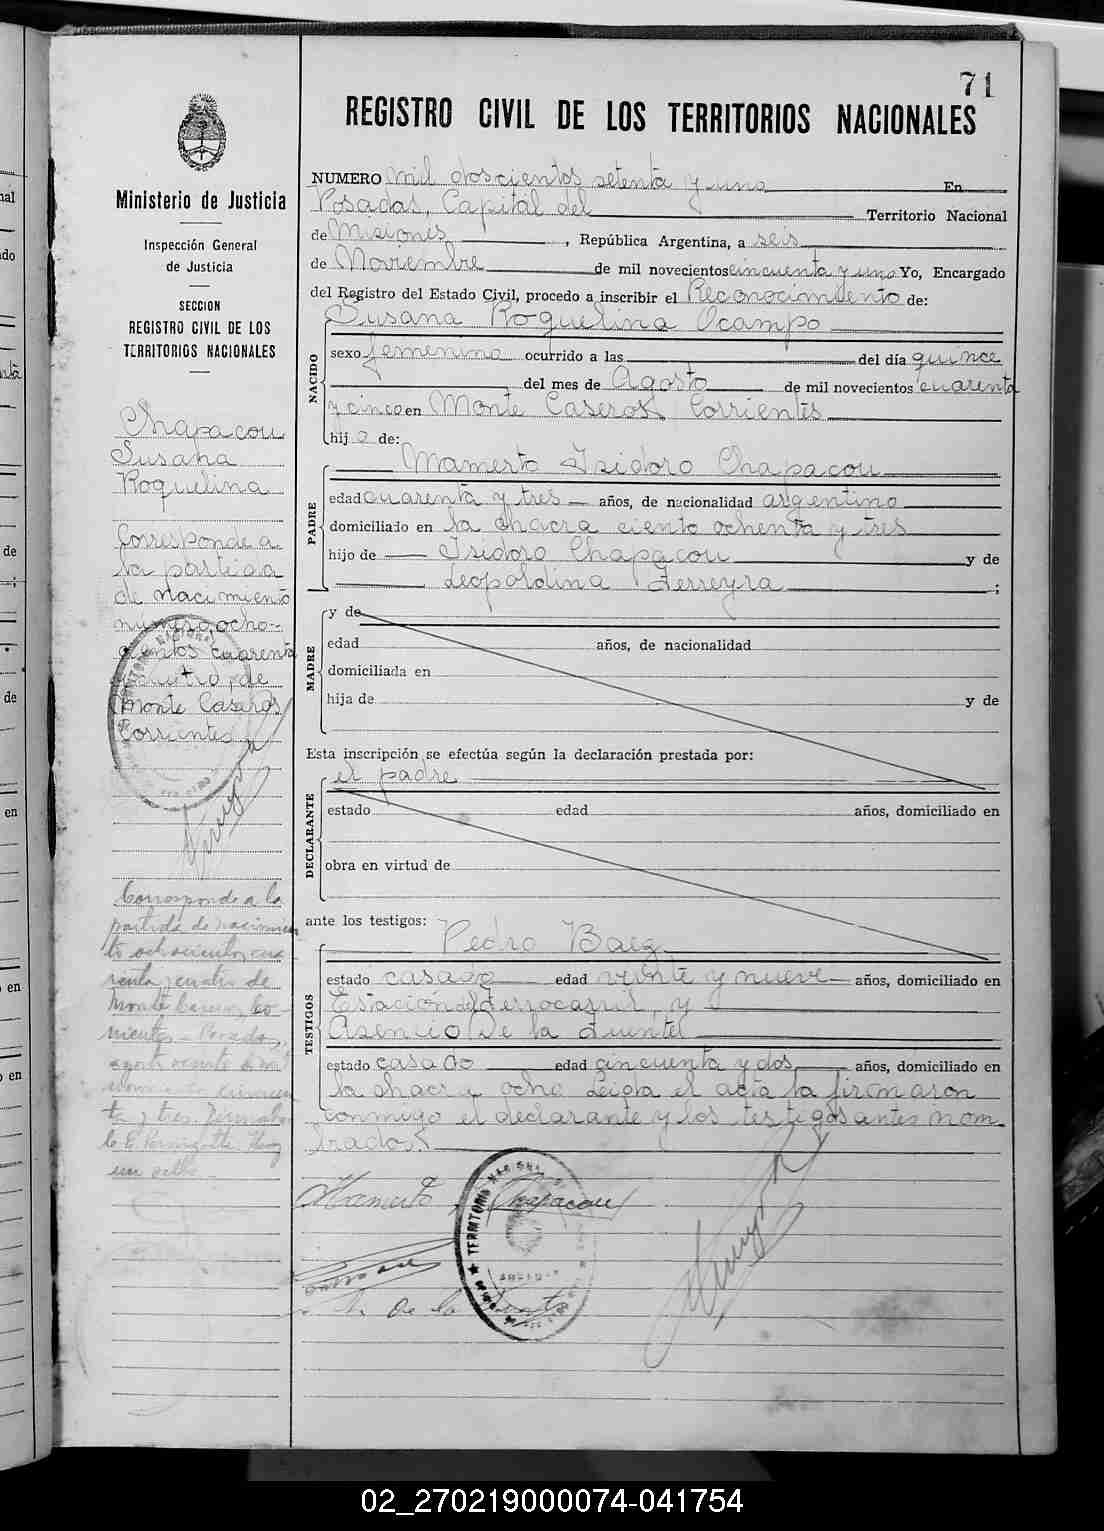 71
REGISTRO CIVIL DE LOS TERRITORIOS NACIONALES
Ministerio de Justicia
Inspección General
de Justicia
SECCION
REGISTRO CIVIL DE LOS
TERRITORIOS NACIONALES
Chapacou
Susana
Roquelina
Corresponde a
la partida
de nacimiento
número ocho-
cientos cuarenta
y cuatro, de
Monte Caseros
Corrientes
Corresponde a la
partida de nacimien
to ochocientos cua
renta y cuatro de
Monte Caseros, Co-
rrientes - Posadas,
agosto veinte de mil
novecientos cincuen
ta y tres.
un sello
NUMERO mil doscientos setenta y uno En
Posadas, Capital del Territorio Nacional
de Misiones, República Argentina, a seis
de Noviembre de mil novecientos cincuenta y uno Yo, Encargado
del Registro del Estado Civil, procedo a inscribir el Reconocimiento de:
NACIDO
Susana Roquelina Ocampo
sexo femenino ocurrido a las del día quince
del mes de Agosto de mil novecientos cuarenta
y cinco en Monte Caseros, Corrientes
hija de:
PADRE
Mamerto Isidoro Chapacou
edad cuarenta y tres años, de nacionalidad argentino
domiciliado en la chacra ciento ochenta y tres
hijo de Isidoro Chapacou y de
Leopoldina Ferreyra ;
MADRE
y de
edad años, de nacionalidad
domiciliada en
hija de y de
Esta inscripción se efectúa según la declaración prestada por:
el padre
DECLARANTE
estado edad años, domiciliado en
obra en virtud de
ante los testigos: Pedro Baez
TESTIGOS
estado casado edad veinte y nueve años, domiciliado en
Estación del Ferrocarril, y
Asencio De la Fuente
estado casado edad cincuenta y dos años, domiciliado en
la chacra ocho Leida el acta la firmaron
conmigo el declarante y los testigos antes nom
brados.
Mamerto Chapacou
de la Fuente
TERRITORIO NACIONAL
02_270219000074-041754